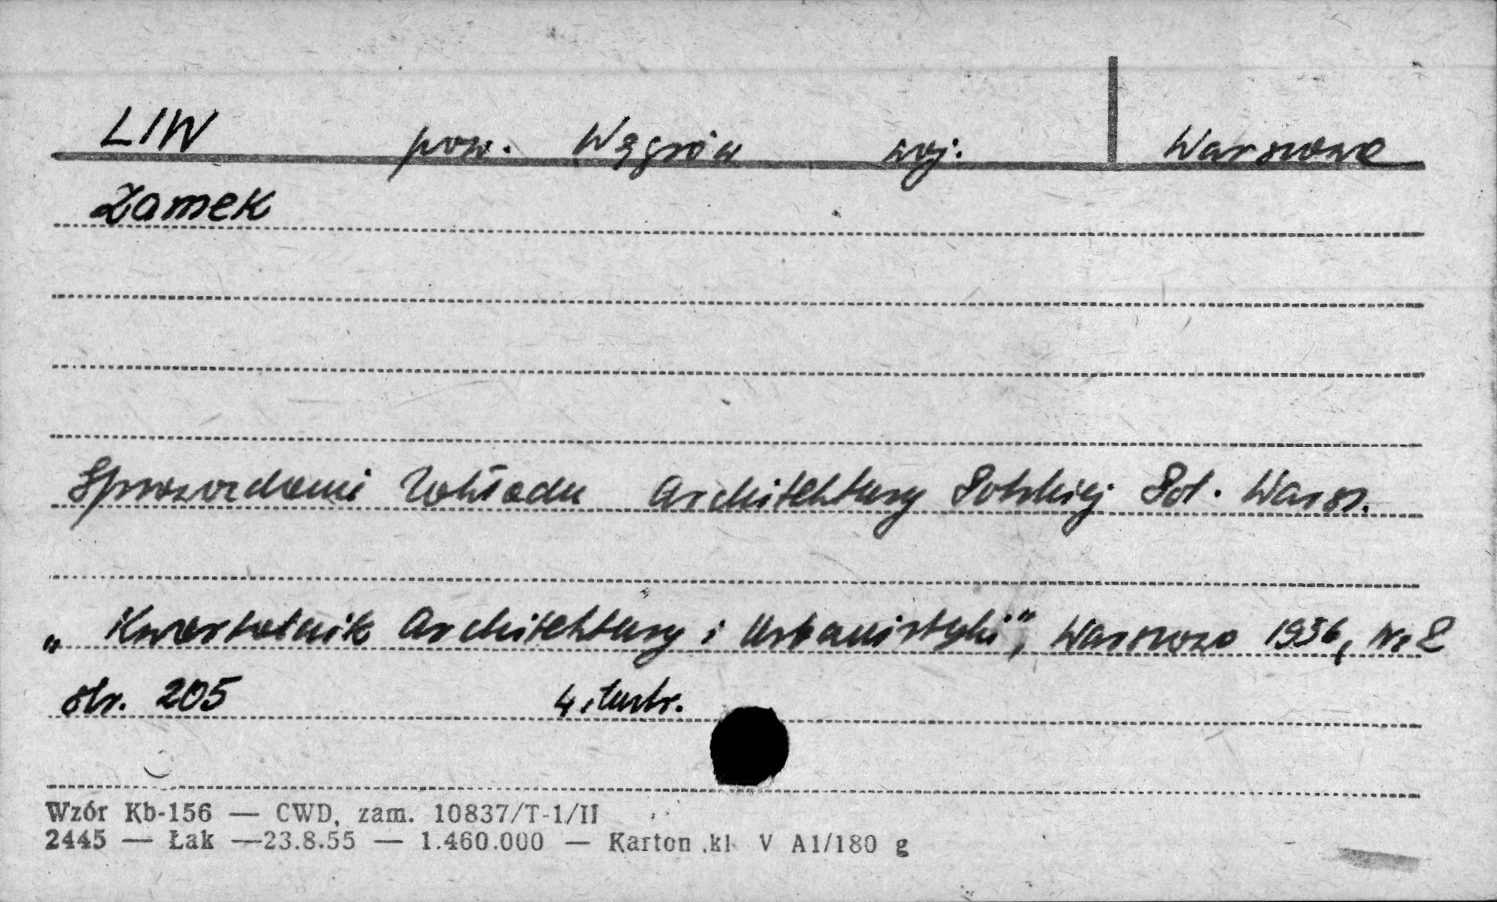 LIW pow. Węgrów woj. Warszawa
Zamek
Sprawozdanie Zakładu Architektury Polskiej Pol. Warsz.
„Kwartalnik Architektury i Urbanistyki", Warszawa 1956, Nr 2
str. 205 4 ilustr.
Wzór Kb-156 — CWD, zam. 10837/T-1/II
2445 — Łak —23.8.55 — 1.460.000 — Karton kl V A1/180 g